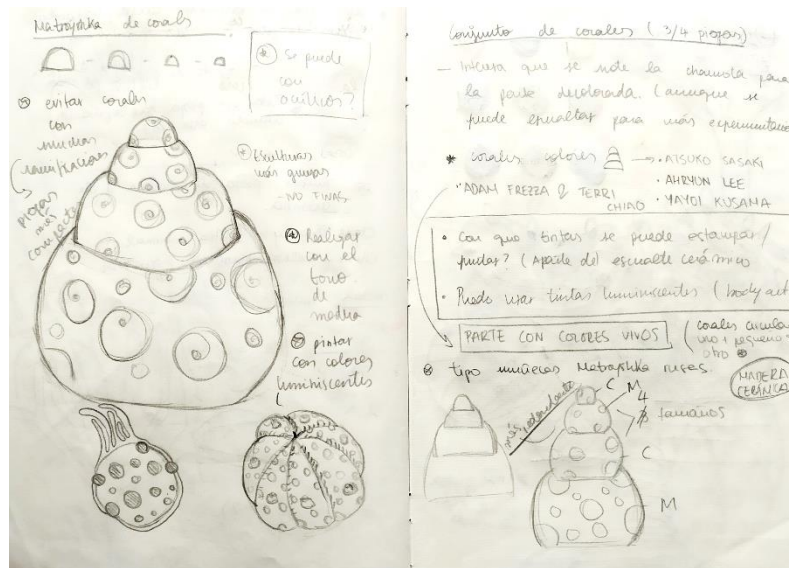 Matrioshka de corals
* Se puede
con
acrílicos?
evitar corales
con
muchas
ramificaciones
piezas
más
compactas
Esculturas
más gruesas
- NO FINAS
Realizar
con el
torno
de
madera
pintar
con colores
luminiscentes
Conjunto de corales (3/4 piezas)
- Interesa que se note la chamota para
la parte decolorada. (aunque se
puede esmaltar para más experimentación
* corales colores → • ATSUKO SASAKI
• AHRYUN LEE
• YAYOI KUSAMA
• ADAM FREZZA & TERRI
CHIAO
• Con que tintas se puede estampar/
pintar? (Aparte del esmalte cerámico
• Puedo usar tintas luminiscentes (body art
PARTE CON COLORES VIVOS
(corales circular
uno + pequeño
otro
tipo muñecas Matrioshka rusas.
MADERA
CERÁMICA
más redondeante
C
M
4
tamaños
C
M